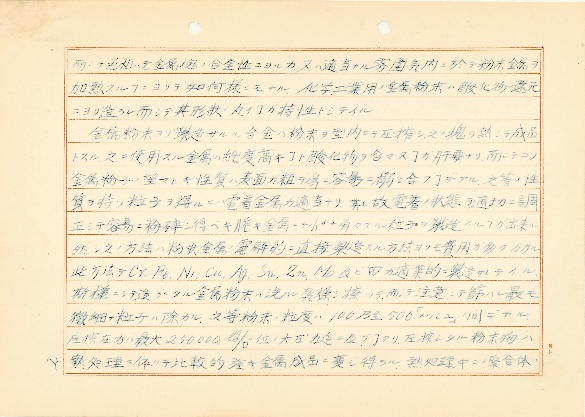 而シテ色相ハ金属塊ノ合金性ニヨルカ又ハ適当ナル雰囲気内ニ於テ粉末金属ヲ
加熱スル コトニヨリテ如何様ニモナル 化学工業用ノ金属粉末ハ酸化物ノ還元
ニヨリ造ラレ而シテ其形状ノ丸イコトガ特性トシテイル
金属粉末ヨリ製造サルル合金ハ粉末ヲ型内ニテ圧搾シ又ハ塊ヲ熱シテ成品
トスル 之ニ使用スル金属ハ純度高キコト酸化物ヲ含マヌコトガ肝要ナリ 而シテコノ
金属粒子ノ望マシキ性質ハ表面ガ粗ク為ニ容易ニ掴ミ合フコトデアル 之等ノ性
質ヲ持ツ粒子ヲ得ルニハ電着金属ガ適当ナリ 電着ノ状態ヲ適切ニ調
正シテ容易ニ粉砕シ得ベキ脆キ金属 粒子ヲ製造スルコトガ出来ル
然シ 方法ハ粉状金属ヲ電解的ニ直接製造スル方法ヨリモ費用ガ多クカカル
此方法デ Cr, Fe, Ni, Cu, Ag, Sn, Zn, Pb 及ビ ガ商業的ニ製造サレテイル
斯様ニシテ造ラレタル金属粉末ハ洗ハレ乾燥シ 而シテ注意シテ篩ハレ最モ
微細ナ粒子ハ除カル 之等粉末ノ粒度ハ 100乃至500メッシュノ間デアル
圧搾圧力ハ最大 250000 位ノ大圧力迄ニ及ブコトアリ 圧搾シタル粉末物ハ
熱処理ニ依リテ比較的強キ金属成品ニ変シ得ラル 熱処理中ニハ聚合体ノ